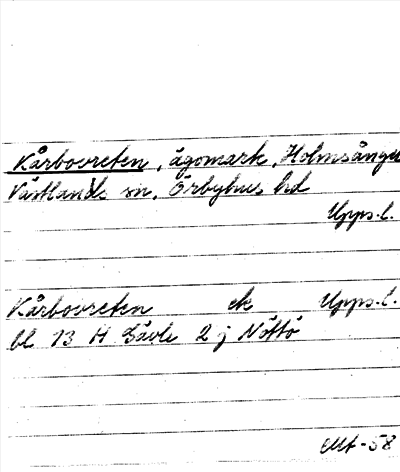 Kårbovreten, ägomark, Holmsånger
Västlands sn, Örbyhus hd
Upps.l.
Kårbovreten ek Upps.l.
bl 13 H Gävle 2 j Nöttö
-58